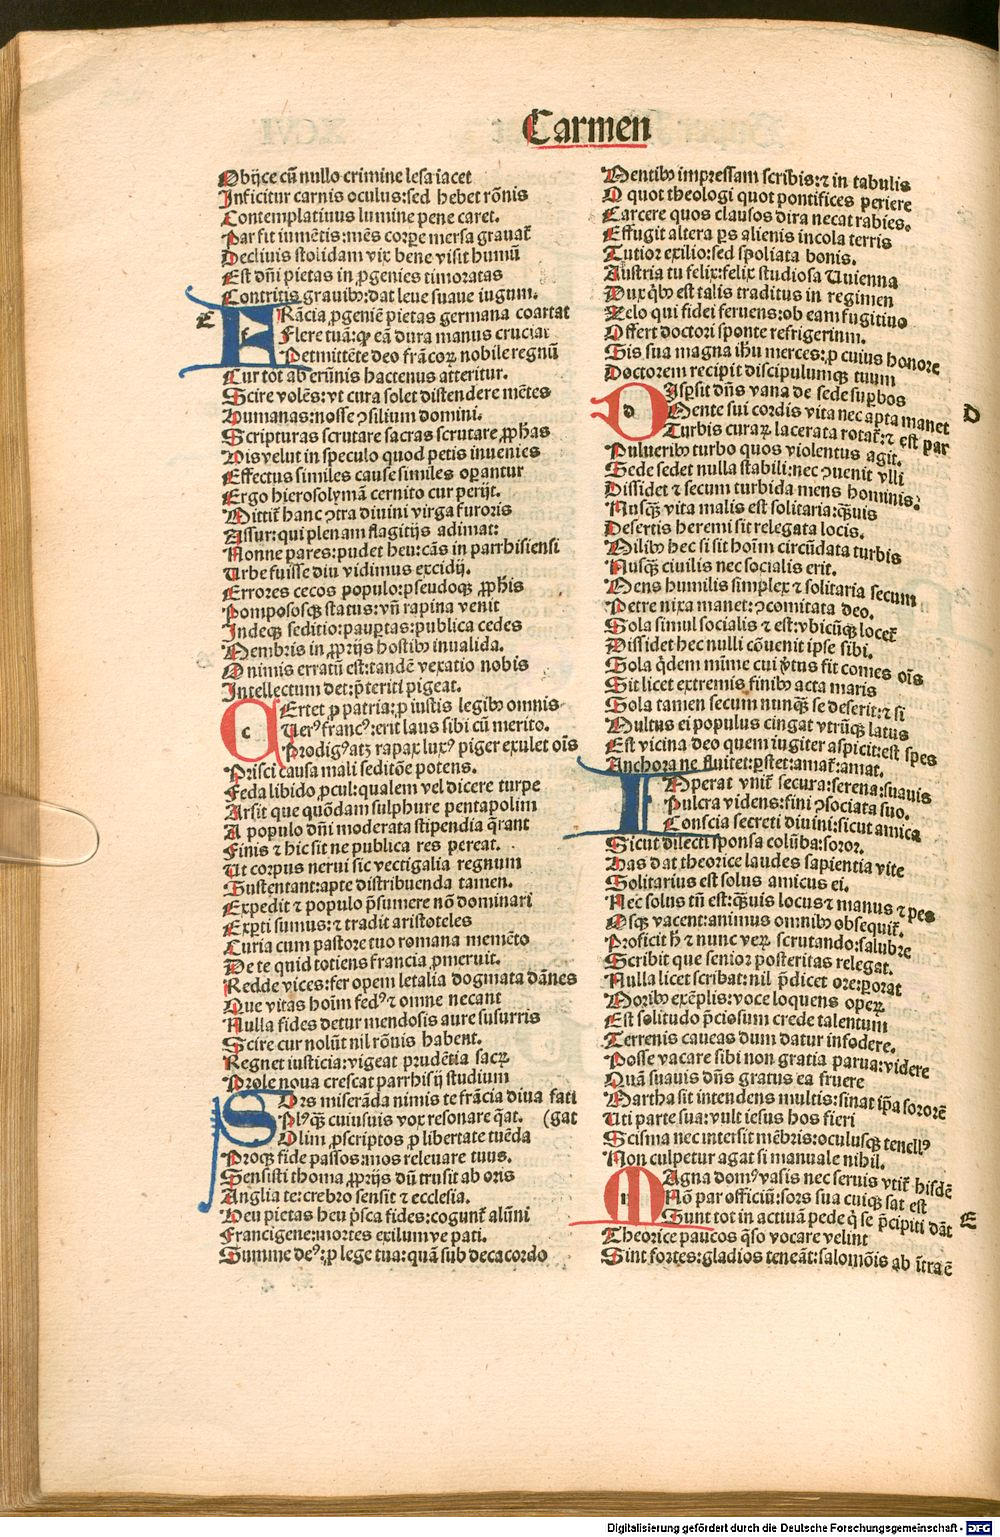 Carmen
Obijce cū nullo crimine lesa iacet
Inficitur carnis oculus:sed hebet rōnis
Contemplatiuus lumine pene caret.
Par fit iumētis:mēs corpe mersa grauat
Decliuis stolidam vix bene visit humū
Est dñi pietas in ꝓgenies timoratas
Contritis grauibꝰ:dat leue suaue iugum.
E
f
Rācia ꝓgeniē pietas germana coartat
Flere tuā:qꝫ eā dura manus cruciat
Petmittēte deo frācoꝝ nobile regnū
Cur tot ab erūnis hactenus atteritur.
Scire volēs:vt cura solet distendere mētes
Humanas:nosse ꝯsilium domini.
Scripturas scrutare sacras scrutare ꝓphas
His velut in speculo quod petis inuenies
Effectus similes cause similes oꝑantur
Ergo hierosolymā cernito cur perijt.
Mittit hanc ꝯtra diuini virga furoris
Assur:qui plenam flagitijs adimat:
Nonne pares:pudet heu:cās in parrhisiensi
Urbe fuisse diu vidimus excidij.
Errores cecos populo:pseudoqꝫ ꝓphis
Pomposoqꝫ status:vñ rapina venit
Indeqꝫ seditio:pauꝑtas:publica cedes
Membris in ꝓprijs hostibꝰ inualida.
O nimis erratū est:tandē vexatio nobis
Intellectum det:p̄teriti pigeat.
c
Ertet ꝓ patria:ꝓ iustis legibꝰ omnis
Uerꝰ francꝰ:erit laus sibi cū merito.
Prodigꝰ atqꝫ rapax luxꝰ piger exulet oīs
Prisci causa mali seditōe potens.
Feda libido ꝓcul:qualem vel dicere turpe
Arsit que quōdam sulphure pentapolim
A populo dñi moderata stipendia q̄rant
Finis ⁊ hic sit ne publica res pereat.
Ut corpus nerui sic vectigalia regnum
Sustentant:apte distribuenda tamen.
Expedit ⁊ populo p̄sumere nō dominari
Exꝑti sumus:⁊ tradit aristoteles
Curia cum pastore tuo romana memēto
De te quid totiens francia ꝓmeruit.
Redde vices:fer opem letalia dogmata dānes
Que vitas hoīm fedꝰ ⁊ omne necant
Nulla fides detur mendosis aure susurris
Scire cur nolūt nil rōnis habent.
Regnet iusticia:vigeat prudētia sacꝝ
Prole noua crescat parrhisij studium
Ors miserāda nimis te frācia diua fati
Plꝰ qꝫ cuiusuis vox resonare q̄at. (gat
Olim ꝓscriptos ꝓ libertate tuēda
Proqꝫ fide passos:mos releuare tuus.
Sensisti thoma ꝓprijs dū trusit ab oris
Anglia te:crebro sensit ⁊ ecclesia.
Heu pietas heu p̄sca fides:cogunt alūni
Francigene:mortes exilumve pati.
Summe deꝰ:ꝓ lege tua:quā sub decacordo
Mentibꝰ impressam scribis:⁊ in tabulis
O quot theologi quot pontifices periere
Carcere quos clausos dira necat rabies.
Effugit altera ꝑs alienis incola terris
Tutior exilio:sed spoliata bonis.
Austria tu felix:felix studiosa Uuienna
Dux q̇bꝰ est talis traditus in regimen
Zelo qui fidei feruens:ob eam fugitiuo
Offert doctori sponte refrigerium.
Sis sua magna ihū merces:ꝓ cuius honore
Doctorem recipit discipulumqꝫ tuum
D
d
Isꝑsit dñs vana de sede suꝑbos
Mente sui cordis vita nec apta manet
Turbis curaꝝ lacerata rotat:⁊ est par
Pulueribꝰ turbo quos violentus agit.
Sede sedet nulla stabili:nec ꝯuenit vlli
Dissidet ⁊ secum turbida mens hominis:
Nusqꝫ vita malis est solitaria:qꝫuis
Desertis heremi sit relegata locis.
Milibꝰ hec si sit hoīm circūdata turbis
Nusqꝫ ciuilis nec socialis erit.
Mens humilis simplex ⁊ solitaria secum
Petre nixa manet:ꝯcomitata deo.
Sola simul socialis ⁊ est:vbicūqꝫ locet
Dissidet hec nulli cōuenit ipse sibi.
Sola q̇dem mīme cui v̇tus fit comes oīs
Sit licet extremis finibꝰ acta maris
Sola tamen secum nunqꝫ se deserit:⁊ si
Multus ei populus cingat vtrūqꝫ latus
Est vicina deo quem iugiter aspicit:est spes
Anchora ne fluitet:ꝑstet:amat:amat.
Mperat vnit secura:serena:suauis
Pulcra videns:fini ꝯsociata suo.
Conscia secreti diuini:sicut amica
Sicut dilecti sponsa colūba:soror.
Has dat theorice laudes sapientia vite
Solitarius est solus amicus ei.
Nec solus tñ est:qꝫuis locus ⁊ manus ⁊ pes
Osqꝫ vacent:animus omnibꝰ obsequit.
Proficit h̄ ⁊ nunc veꝝ scrutando:salubre
Scribit que senior posteritas relegat.
Nulla licet scribat:nil p̄dicet ore:ꝑorat
Moribꝰ exēplis:voce loquens opeꝝ
Est solitudo p̄ciosum crede talentum
Terrenis caueas dum datur infodere.
Posse vacare sibi non gratia parua:videre
Quā suauis dñs gratus ea fruere
Martha sit intendens multis:sinat ip̄a sororē
Uti parte sua:vult iesus hos fieri
Scisma nec intersit mēbris:oculusqꝫ tenellꝰ
Non culpetur agat si manuale nihil.
Agna domꝰ vasis nec seruis vtit hisdē
Nō par officiū:sors sua cuiqꝫ sat est
Sunt tot in actiuā pede q̇ se p̄cipiti dāt
E
Theorice paucos q̄so vocare velint
Sint fortes:gladios teneāt:salomōis ab ītra ē
Digitalisierung gefördert durch die Deutsche Forschungsgemeinschaft - DFG